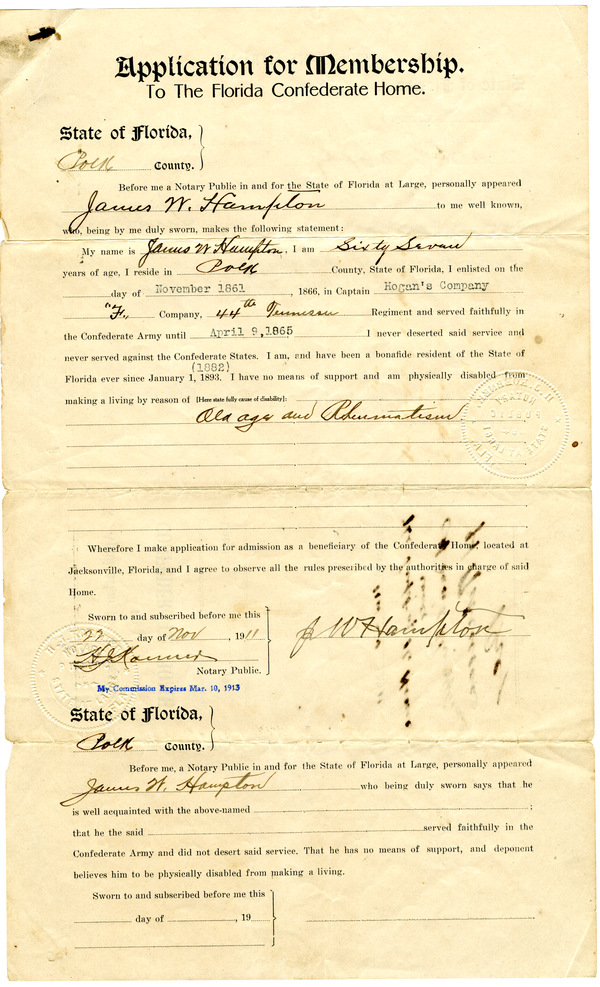 Application for Membership.
To The Florida Confederate Home.
State of Florida,
Polk County.
Before me a Notary Public in and for the State of Florida at Large, personally appeared
James W. Hampton to me well known,
who, being by me duly sworn, makes the following statement:
My name is James W Hampton, I am Sixty Seven
years of age, I reside in Polk County, State of Florida, I enlisted on the
day of November 1861, 1866, in Captain Hogan's Company
"F," Company, 44th Tennessee Regiment and served faithfully in
the Confederate Army until April 9,1865 I never deserted said service and
never served against the Confederate States. I am, and have been a bonafide resident of the State of
(1882)
Florida ever since January 1, 1893. I have no means of support and am physically disabled from
making a living by reason of [Here state fully cause of disability]:
Old age and Rheumatism
Wherefore I make application for admission as a beneficiary of the Confederate Home, located at
Jacksonville, Florida, and I agree to observe all the rules prescribed by the authorities in charge of said
Home.
Sworn to and subscribed before me this
22 day of Nov, 1911
J W Hampton
Notary Public.
My Commission Expires Mar. 10, 1913
State of Florida,
Polk County.
Before me, a Notary Public in and for the State of Florida at Large, personally appeared
James W. Hampton who being duly sworn says that he
is well acquainted with the above-named ;
that he the said served faithfully in the
Confederate Army and did not desert said service. That he has no means of support, and deponent
believes him to be physically disabled from making a living.
Sworn to and subscribed before me this
day of , 19